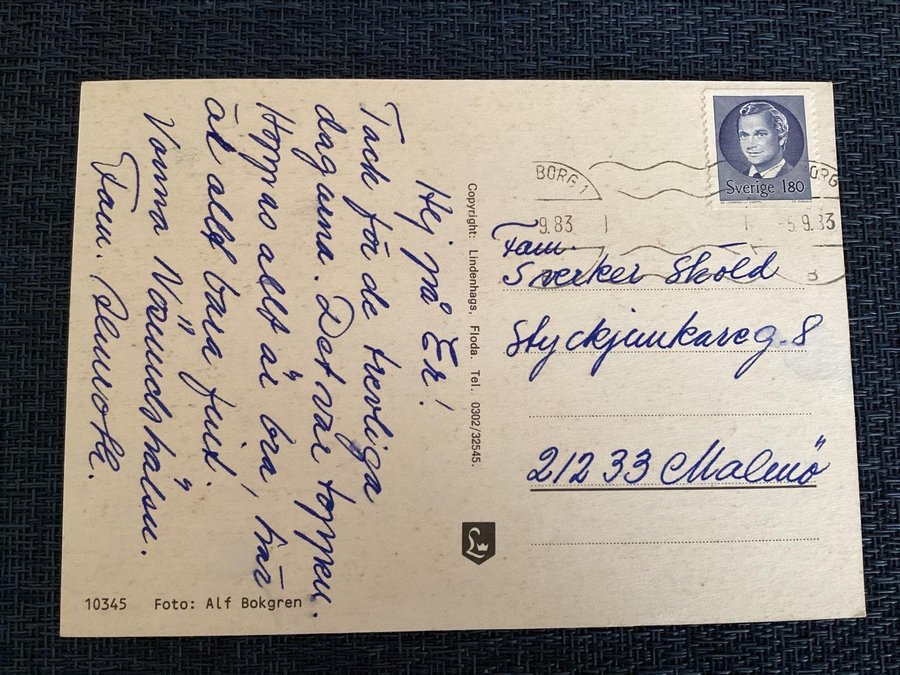 Hej på Er!
Tack för de trevliga
dagarna. Det var toppen.
Hoppas allt är bra, här
är allt bara fint.
Varma Vänners hälsn.
Fam.
Copyright: Lindenhags, Floda. Tel. 0302/32545.
10345 Foto: Alf Bokgren
Sverige 180
BORG 1
9.83
ORG
5.9.83
B
Fam.
Sverker Sköld
Styckjunkareg. 8
212 33 Malmö
L